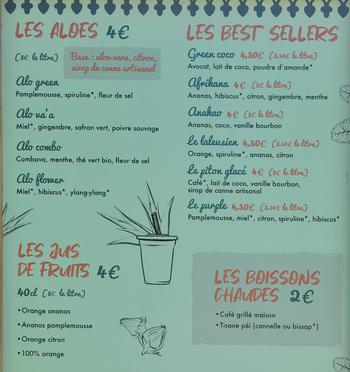 LES ALOES 4€
(8€ le litre)
Base : aloe-vera, citron,
sirop de canne artisanal
Alo green
Pamplemousse, spiruline*, fleur de sel
Alo va'a
Miel*, gingembre, safran vert, poivre sauvage
Alo combo
Combava, menthe, thé vert bio, fleur de sel
Alo flower
Miel*, hibiscus*, ylang-ylang*
LES JUS
DE FRUITS 4€
40cl (8€ le litre)
• Orange ananas
• Ananas pamplemousse
• Orange citron
• 100% orange
LES BEST SELLERS
Green coco 4,50€ (2,50€ le litre)
Avocat, lait de coco, poudre d'amande*
Afrikana 4€ (8€ le litre)
Ananas, hibiscus*, citron, gingembre, menthe
Anakao 4€ (8€ le litre)
Ananas, coco, vanille bourbon
Le laleusien 4,50€ (2,50€ le litre)
Orange, spiruline*, ananas, citron
Le piton glacé 4€ (8€ le litre)
Café*, lait de coco, vanille bourbon,
sirop de canne artisanal
Le purple 4,50€ (2,50€ le litre)
Pamplemousse, miel*, citron, spiruline*, hibiscus*
LES BOISSONS
CHAUDES 2€
• Café grillé maison
• Tisane péi (cannelle ou bissap*)